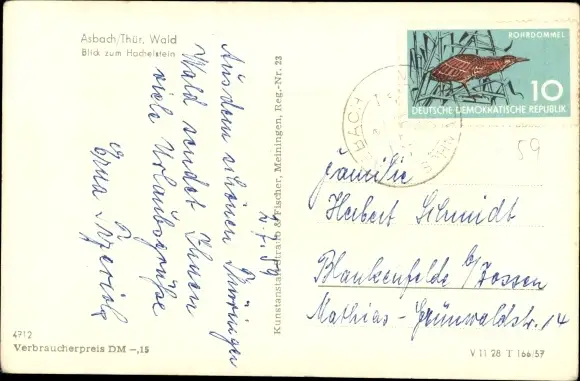 Asbach/Thür. Wald
Blick zum Hachelstein
Aus dem schönen Thüringer
Wald sendet Ihnen
viele Urlaubsgrüße
Erna
4712
Verbraucherpreis DM -,15
Kunstanstalt Straub & Fischer, Meiningen, Reg.-Nr. 23
ROHRDOMMEL
10
DEUTSCHE DEMOKRATISCHE REPUBLIK
59
Familie
Herbert Schmidt
Blankenfelde b/Zossen
Mathias-Grünwaldstr. 14
V 11 28 T 166/57